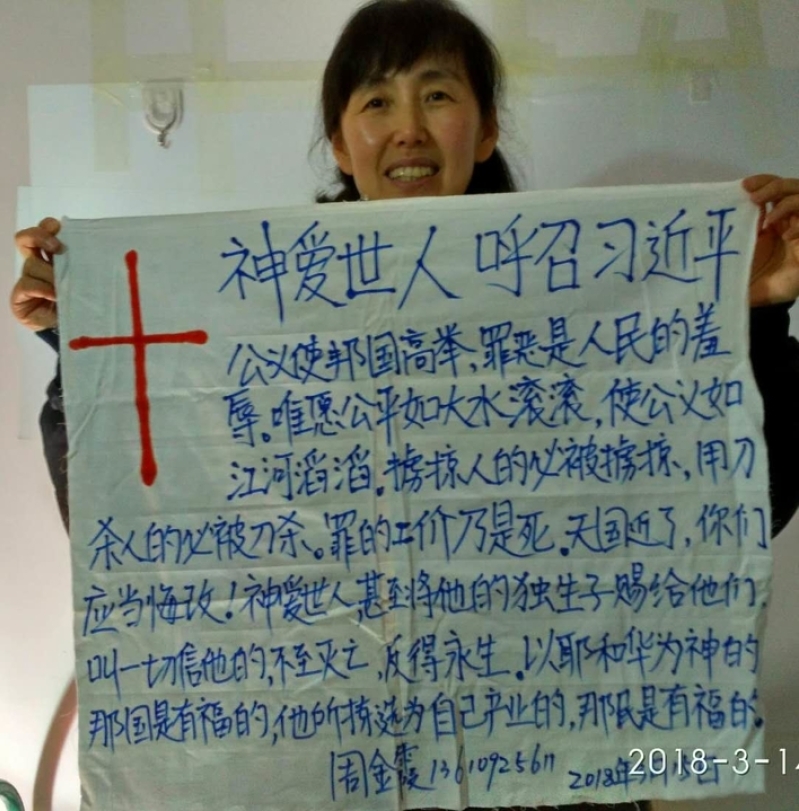 神爱世人 呼召习近平
公义使邦国高举,罪恶是人民的羞
辱。唯愿公平如大水滚滚,使公义如
江河滔滔。掳掠人的必被掳掠,用刀
杀人的必被刀杀。罪的工价乃是死。天国近了,你们
应当悔改!神爱世人,甚至将他的独生子赐给他们,
叫一切信他的,不至灭亡,反得永生。以耶和华为神的
那国是有福的,他所拣选为自己产业的,那民是有福的。
周金霞 2018年
2018-3-14